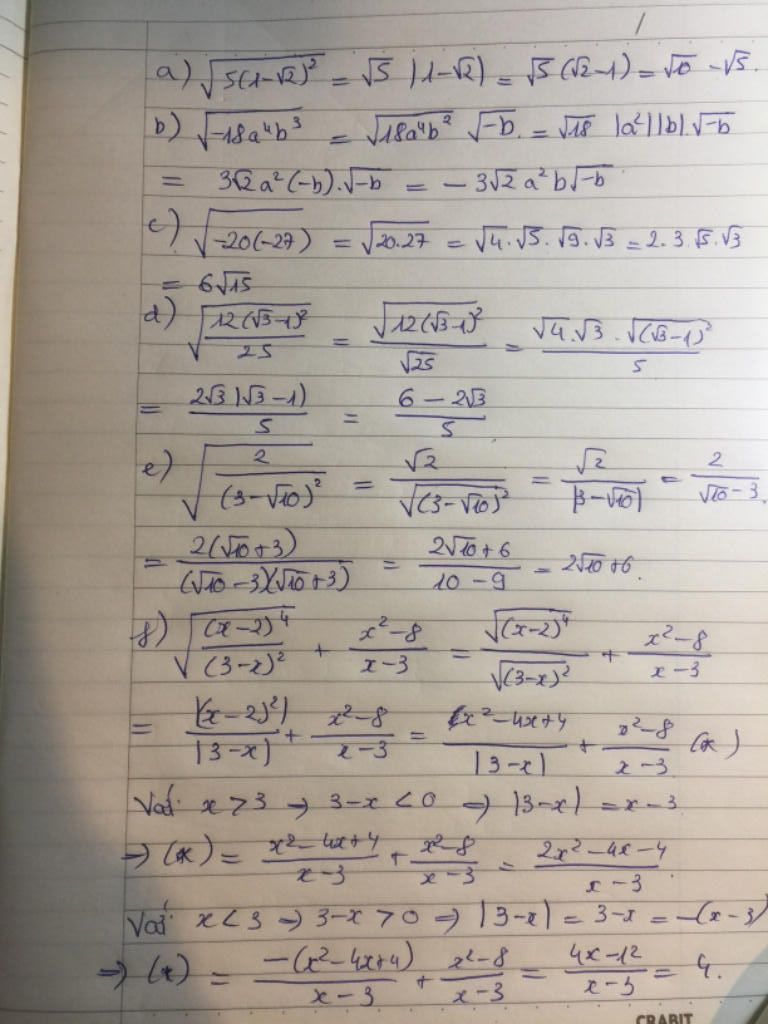 a) √(5(1-√2)²) = √5 |1-√2| = √5 (√2-1) = √10 - √5.
b) √(-18a⁴b³) = √(18a⁴b²) √(-b). = √18 |a²||b|.√(-b)
= 3√2 a² (-b).√(-b) = -3√2 a² b√(-b)
c) √(-20(-27)) = √(20.27) = √4.√5.√9.√3 = 2.3.√5.√3
= 6√15
d) √(12(√3-1)²/25) = √(12(√3-1)²)/√25 = √4.√3.√((√3-1)²)/5
= 2√3|√3-1)/5 = (6-2√3)/5
e) √(2/(3-√10)²) = √2/√((3-√10)²) = √2/|3-√10| = 2/(√10-3).
= 2(√10+3)/((√10-3)(√10+3)) = (2√10+6)/(10-9) = 2√10+6.
f) √((x-2)⁴/(3-x)²) + (x²-8)/(x-3) = √((x-2)⁴)/√((3-x)²) + (x²-8)/(x-3)
= |(x-2)²|/|3-x| + (x²-8)/(x-3) = (x²-4x+4)/|3-x| + (x²-8)/(x-3) (*)
Với x > 3 → 3-x < 0 → |3-x| = x-3
→ (*) = (x²-4x+4)/(x-3) + (x²-8)/(x-3) = (2x²-4x-4)/(x-3).
Với x < 3 → 3-x > 0 → |3-x| = 3-x = -(x-3)
⇒ (*) = -(x²-4x+4)/(x-3) + (x²-8)/(x-3) = (4x-12)/(x-3) = 4.
CRABIT